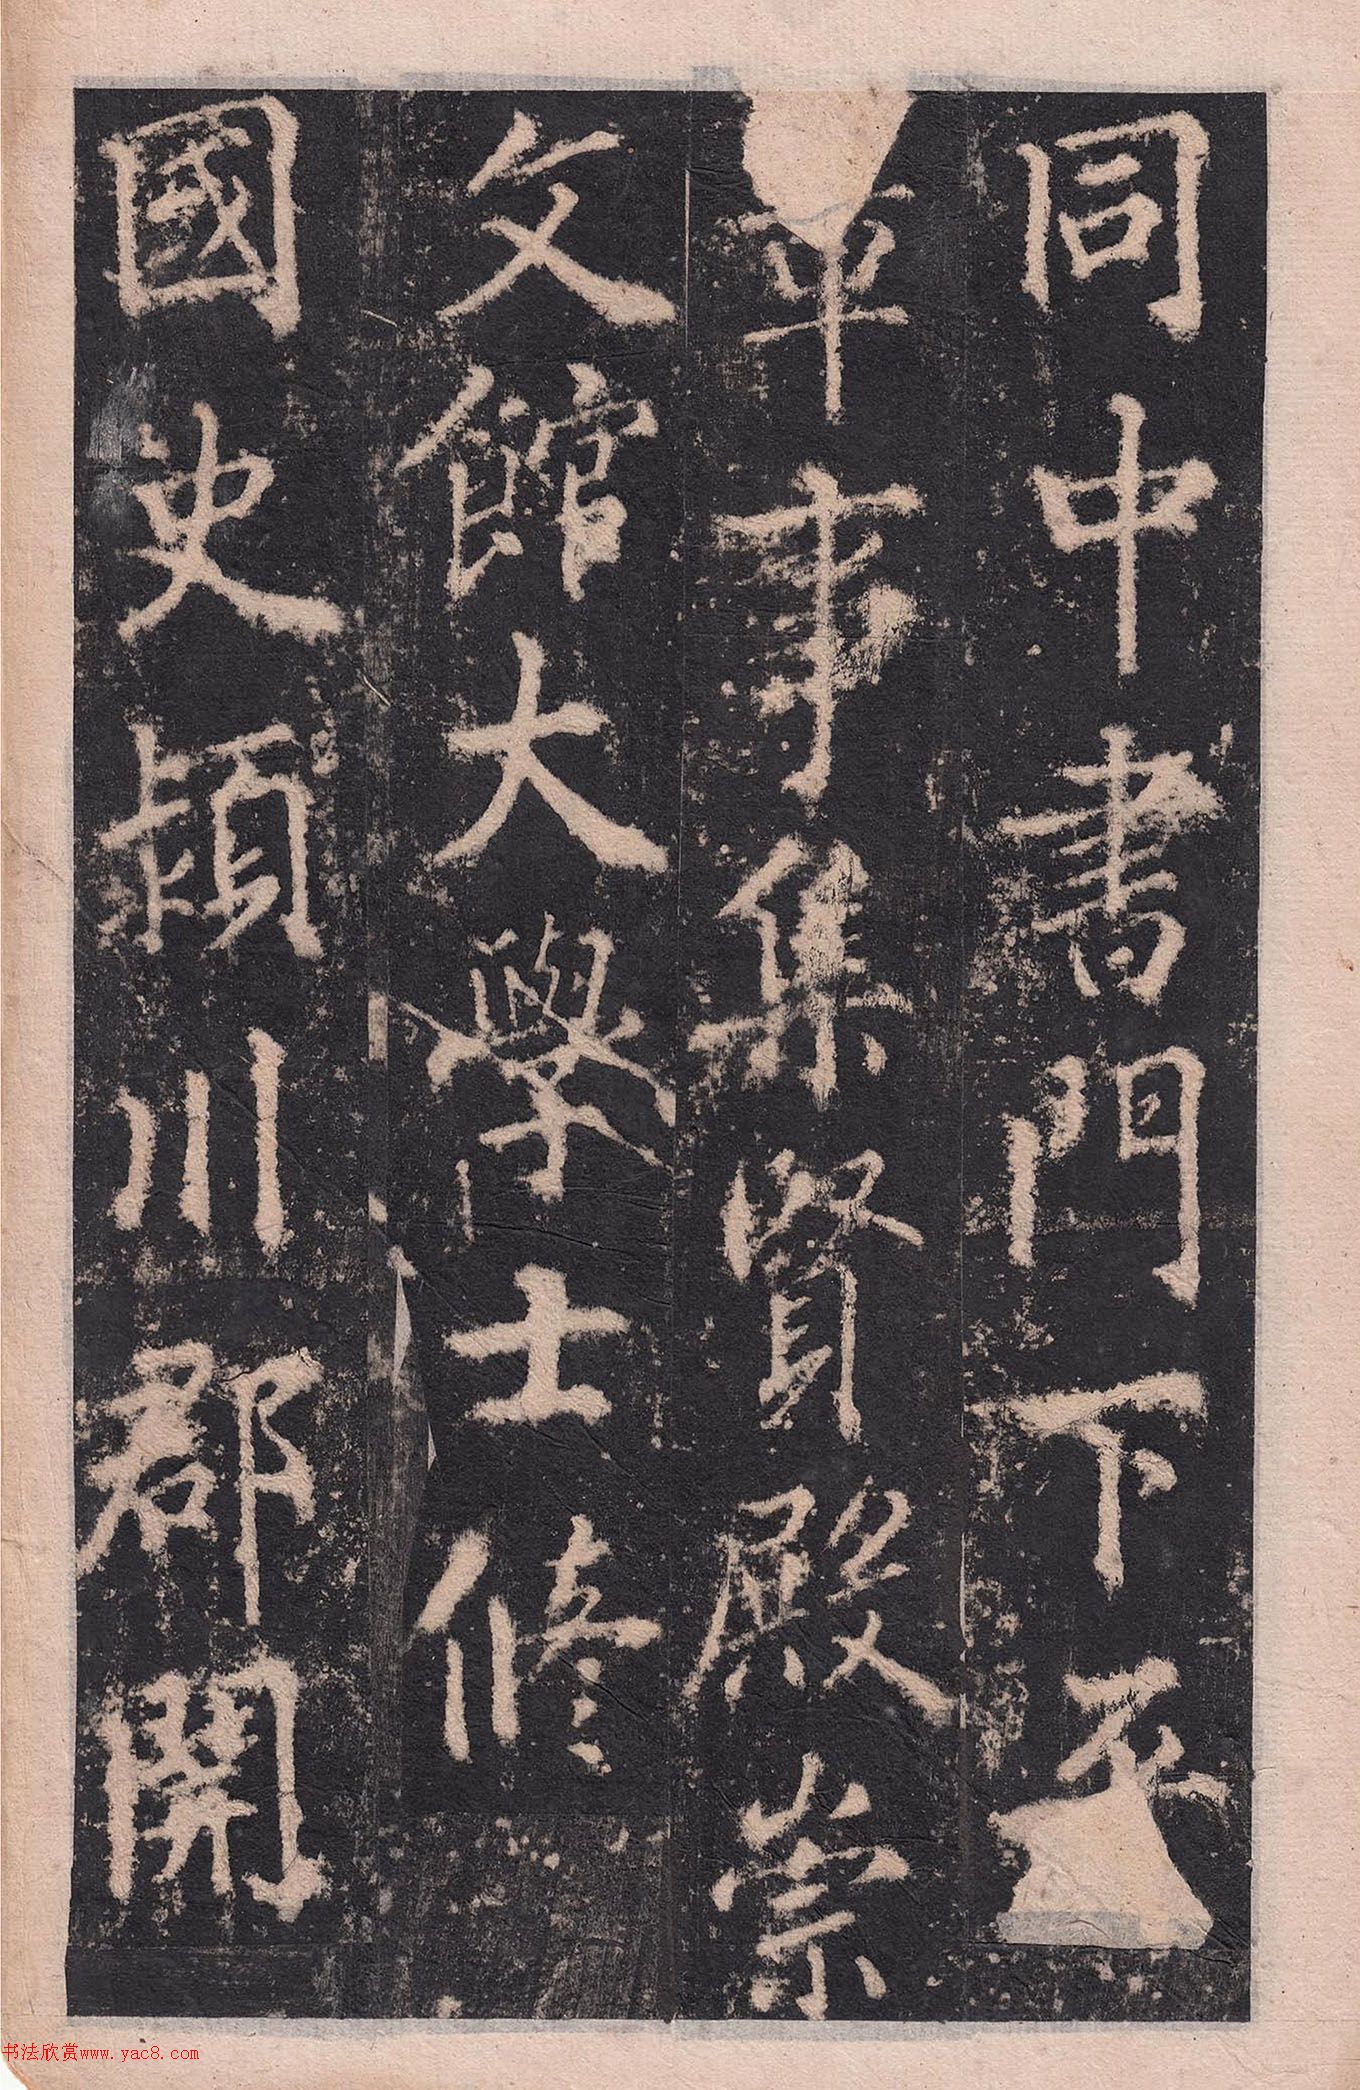 同中書門下
平事集賢殿崇
文館大學士修
國史潁川郡開
书法欣赏www.yac8.com